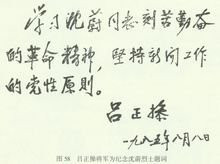 学习沈蔚同志刻苦勤奋
的革命精神，坚持新闻工作
的党性原则。
吕正操
一九八五年八月八日
图 58 吕正操将军为纪念沈蔚烈士题词